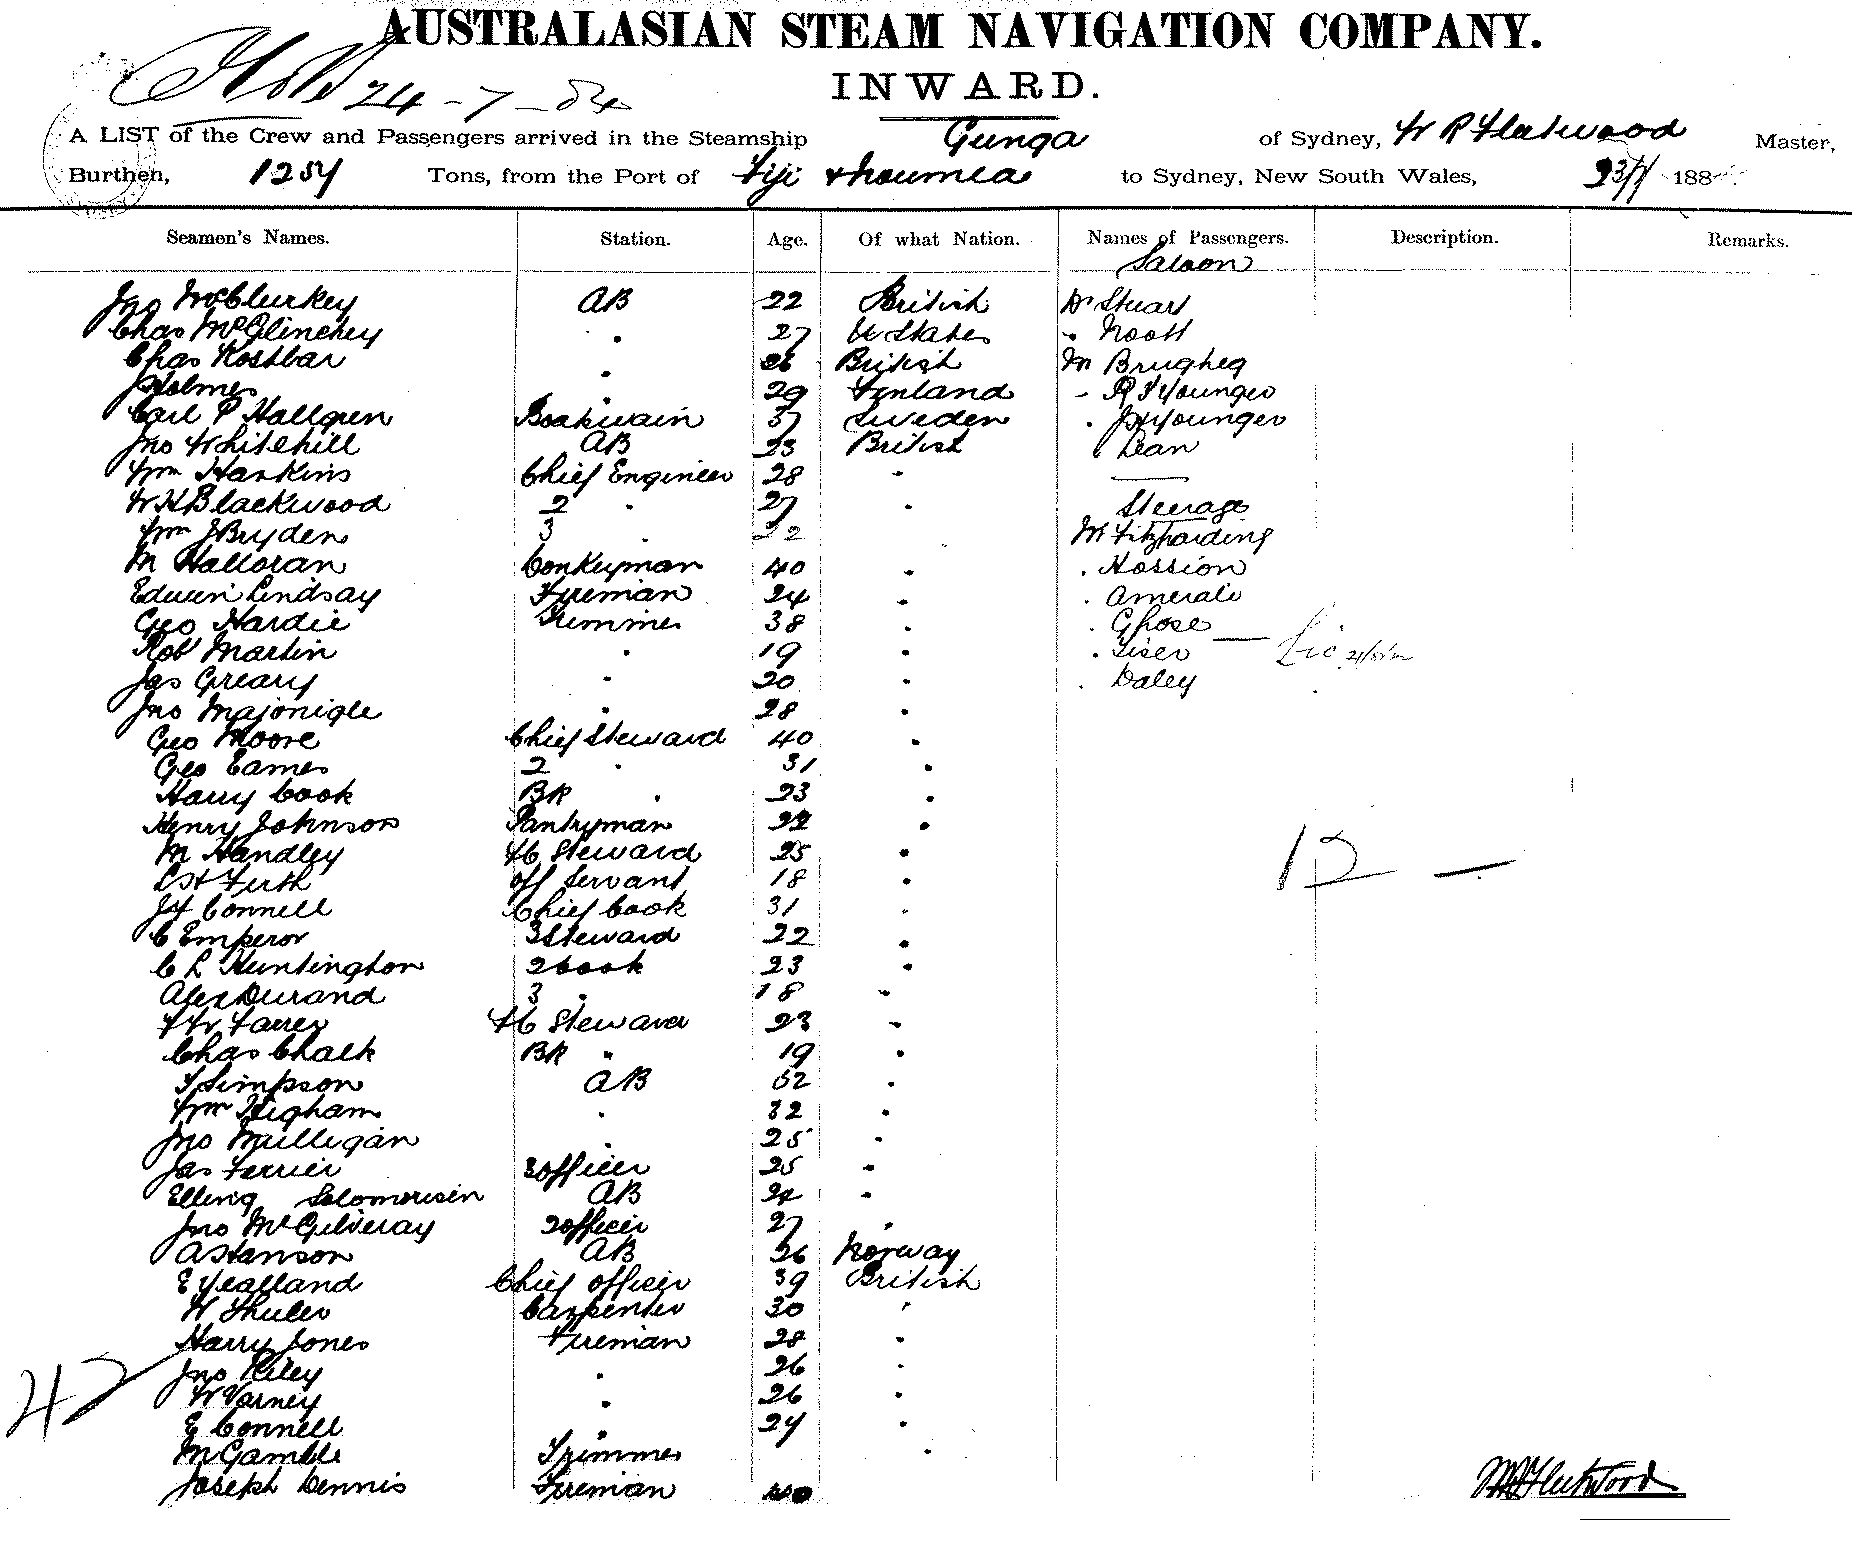 AUSTRALASIAN STEAM NAVIGATION COMPANY.
24-7-84
INWARD.
A LIST of the Crew and Passengers arrived in the Steamship Gunga of Sydney, W R Fleetwood Master,
Burthen, 1254 Tons, from the Port of Fiji & Noumea to Sydney, New South Wales, 23/7 188
Seamen's Names. Station. Age. Of what Nation. Names of Passengers. Description. Remarks.
Saloon
Jno McClurkey AB 22 British Dr Stuart
Chas McGlinchey " 27 U States " Noott
Chas Kostbar " 26 British Mr Brugheg
J Holmes " 29 Finland " R F Younger
Carl P Hallgren Boatswain 37 Sweden " J H Younger
Jno Whitehill AB 23 British " Dean
Wm Haskins Chief Engineer 28 "
W H Blackwood 2 " 27 " Steerage
Wm J Bryden 3 " 22 " Mr Fitzharding
M Halloran Donkeyman 40 " " Hossion
Edwin Lindsay Fireman 24 " " Amerali
Geo Hardie Trimmer 38 " " Ghose
Rob Martin " 19 " " Fiser
Jas Greary " 20 " " Daley
Jno Majonigle " 28 "
Geo Moore Chief Steward 40 "
Geo Eames 2 " 31 "
Harry Cook BR " 23 "
Henry Johnson Pantryman 22 "
M Handley FC Steward 25 "
Firth Off Servant 18 "
Connell Chief Cook 31 "
C Emperor 3 Steward 22 "
C L Huntington 2 Cook 23 "
Alex Durand 3 " 18 "
F W Farrer FC Steward 23 "
Chas Chalk BR " 19 "
T Simpson AB 52 "
Wm Higham " 32 "
Jno Mulligan " 25 "
Jas Ferrier 3 officer 25 "
Elling Salomonsen AB 24 "
Jno McGilveray 2 officer 27 "
A Hanson AB 26 Norway
E Yealland Chief officer 39 British
W Thuler Carpenter 30 "
Harry Jones Fireman 28 "
Jno Riley " 26 "
W Varney " 26 "
E Connell " 24 "
M Gamble Trimmer "
Joseph Dennis Fireman 40
12 —
42
W R Fleetwood